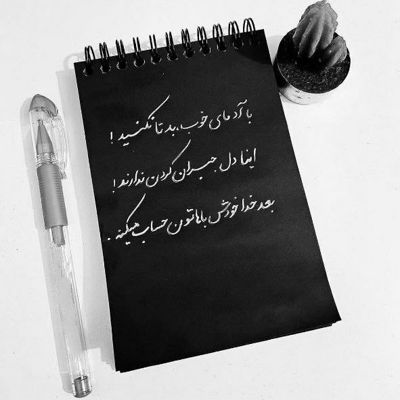 با آدمای خوب، بد تا نکنید!
اینا دل جبران کردن ندارند!
بعد خدا خودش باهاتون حساب میکنه.